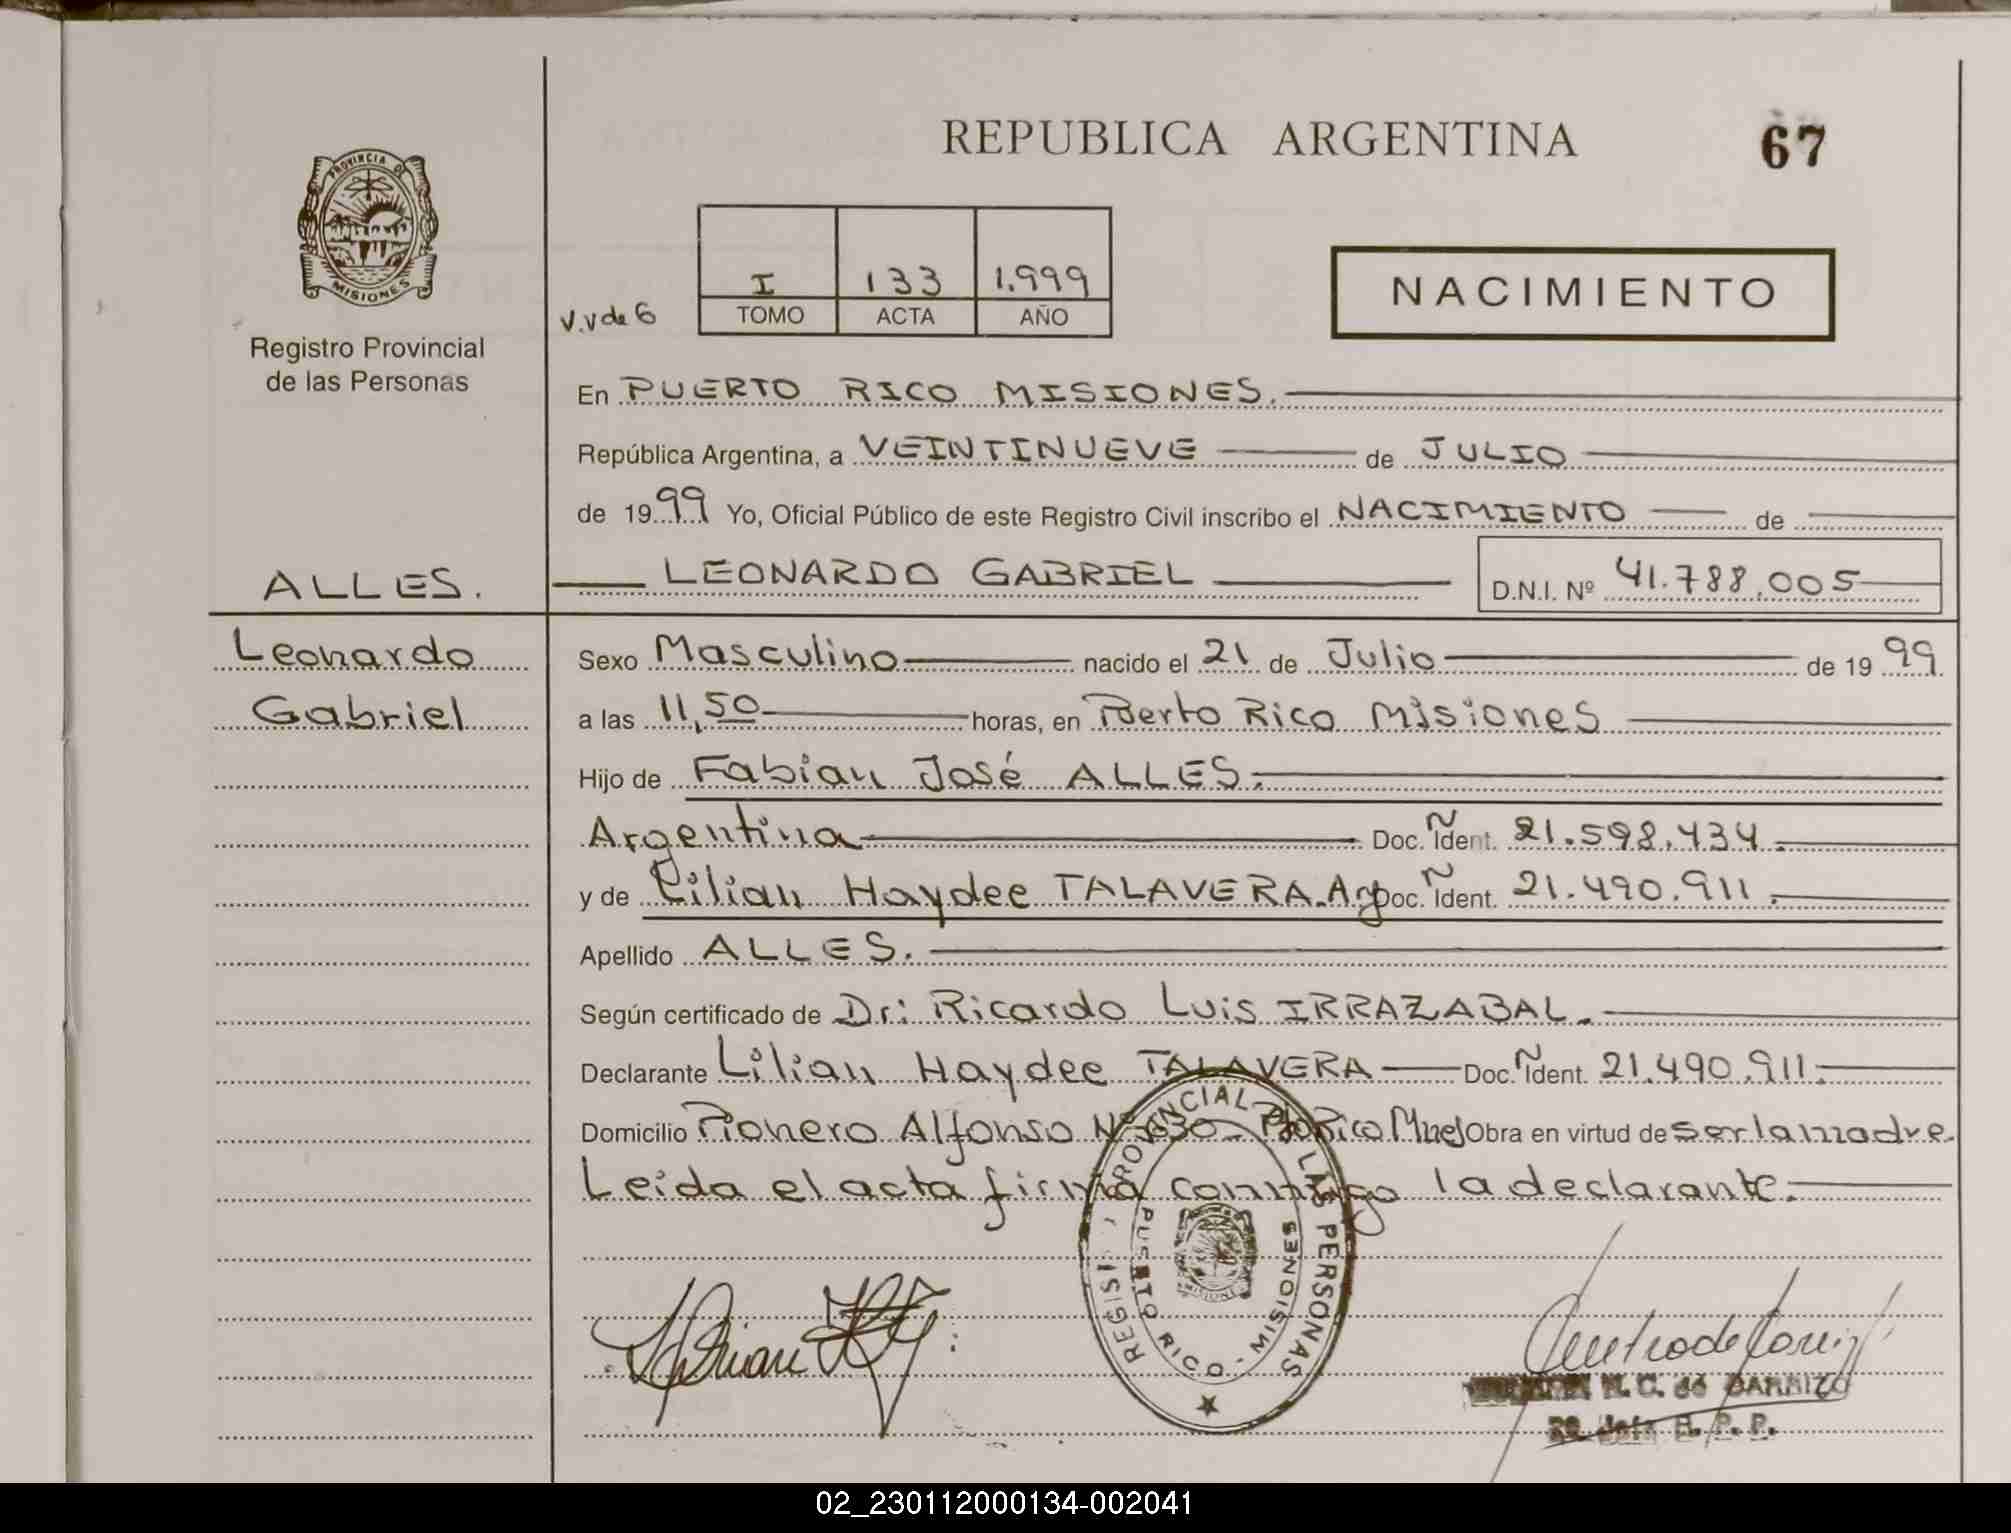 REPUBLICA ARGENTINA
67
PROVINCIA DE
MISIONES
Registro Provincial
de las Personas
V.V de 6
I 133 1.999
TOMO ACTA AÑO
NACIMIENTO
En PUERTO RICO MISIONES.
República Argentina, a VEINTINUEVE de JULIO
de 1999 Yo, Oficial Público de este Registro Civil inscribo el NACIMIENTO de
ALLES. LEONARDO GABRIEL D.N.I. Nº 41.788.005
Leonardo
Gabriel
Sexo Masculino nacido el 21 de Julio de 1999
a las 11,50 horas, en Puerto Rico Misiones
Hijo de Fabian José ALLES.
Argentina Doc. Ident. 21.598.434.
y de Lilian Haydee TALAVERA. Arg Doc. Ident. 21.490.911.
Apellido ALLES.
Según certificado de Dr: Ricardo Luis IRRAZABAL.
Declarante Lilian Haydee TALAVERA Doc. Ident. 21.490.911.
Domicilio Pionero Alfonso Nº Rico Mnes Obra en virtud de ser la madre.
Leida el acta firma conmigo la declarante.
REGISTRO PROVINCIAL DE LAS PERSONAS
PUERTO RICO - MISIONES
MISIONES
N. C. de
R. P. P.
02_230112000134-002041